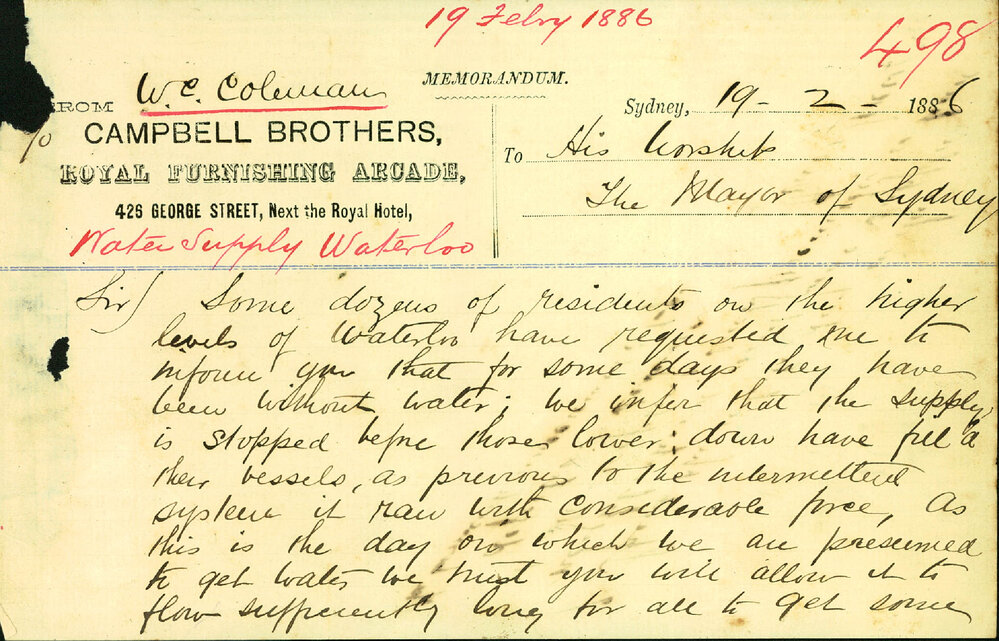 19 Febry 1886
498
MEMORANDUM.
FROM W. C. Coleman
Sydney, 19 - 2 - 1886
c/o CAMPBELL BROTHERS,
To His Worship
ROYAL FURNISHING ARCADE,
The Mayor of Sydney
426 GEORGE STREET, Next the Royal Hotel,
Water Supply Waterloo
Sir) Some dozens of residents on the higher
levels of Waterloo have requested me to
inform you that for some days they have
been without water; we infer that the supply
is stopped before those lower down have fill'd
their vessels, as previous to the intermittent
system it ran with considerable force, as
this is the day on which we are presumed
to get water we trust you will allow it to
flow sufficiently long for all to get some